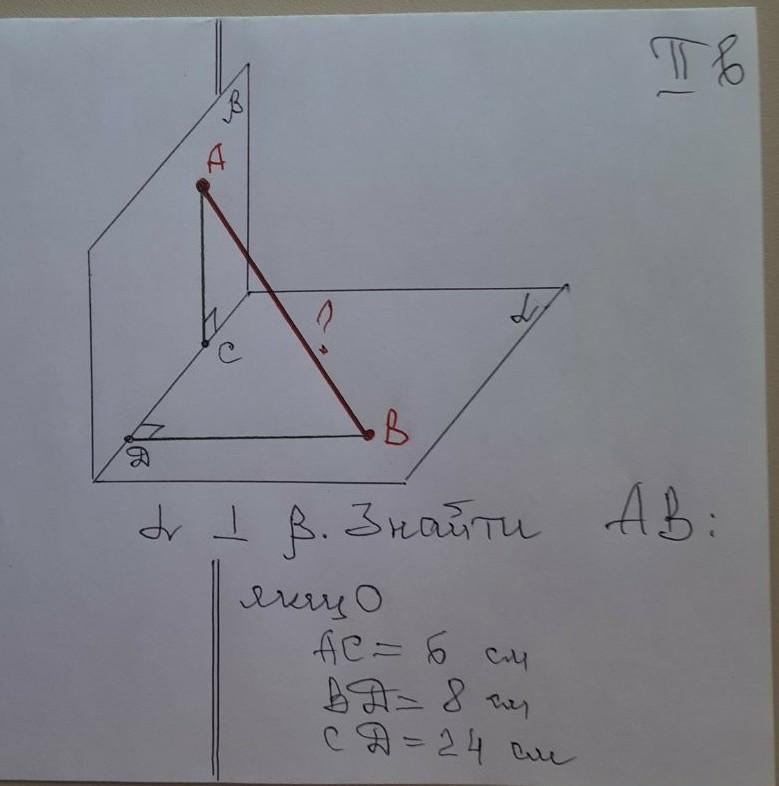 II в
β
A
?
α
C
B
D
α ⊥ β. Знайти AB:
якщо
AC = 6 см
BD = 8 см
CD = 24 см